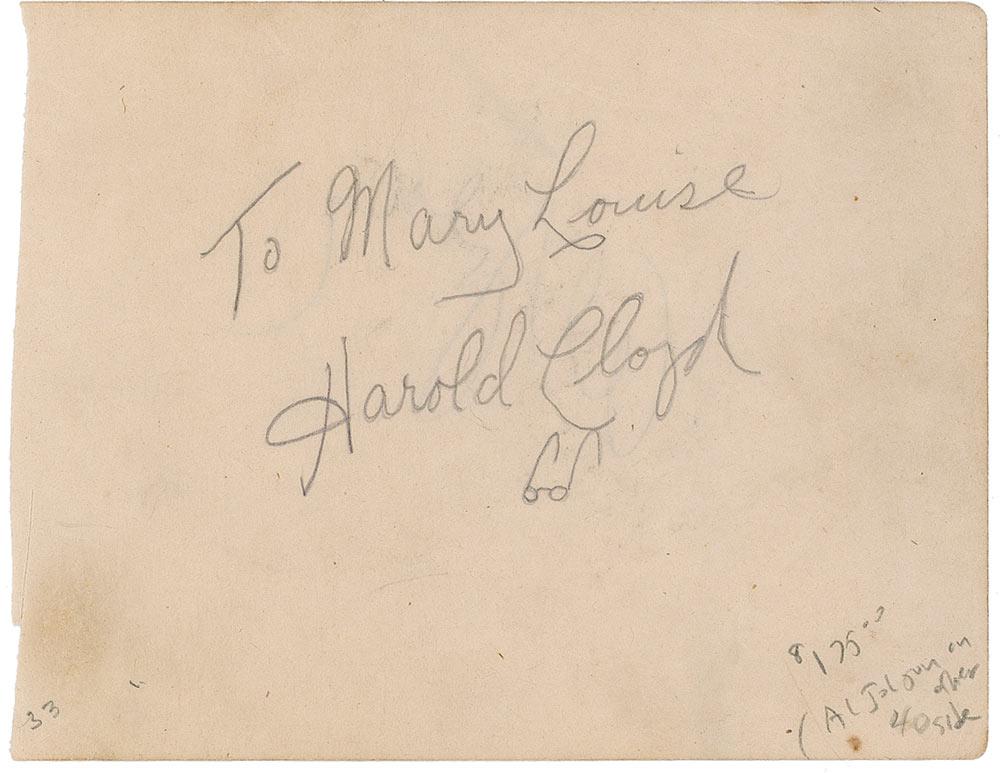 To Mary Louise
Harold Lloyd
33
$175.00
(Al Jolson on
other
side